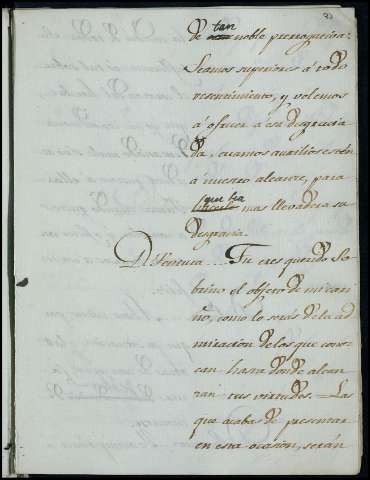 de tan noble prerrogativa:
Seamos superiores á todo
resentimiento, y volemos
á ofrecer á esa desgracia
da, cuantos auxilios estén
á nuestro alcance, para
que sea mas llevadera su
desgracia.
Ventura .... Tu eres querido So
brino el objeto de mi cari
ño, como lo serás de la ad
miración de los que conoz-
can hasta donde alcan
zan tus virtudes. = Las
que acabas de presentar
en esta ocasion, serán